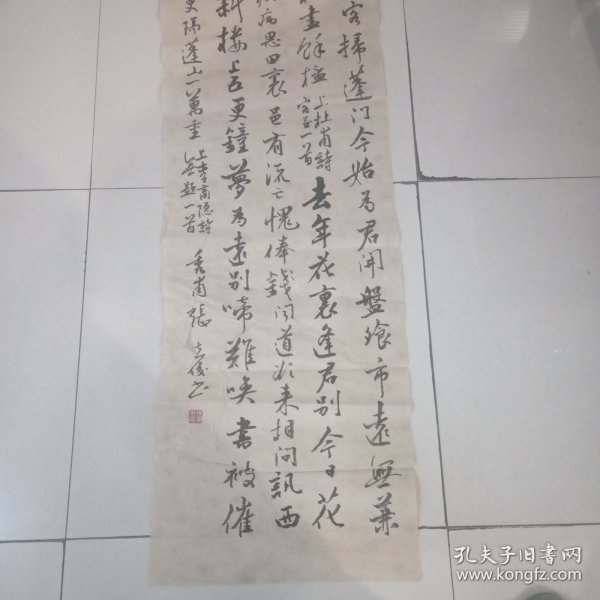 客掃蓬门今始为君開盤飱市遠無兼
盡餘杯 上杜甫詩客至一首 去年花裏逢君别今日花
病思田裏邑有流亡愧俸錢闻道欲来相问訊西
斜楼上五更鐘夢为遠别啼難唤書被催
更隔蓬山一萬重 上李商隐詩無題一首 秀甫張
孔夫子旧书网
www.kongfz.com